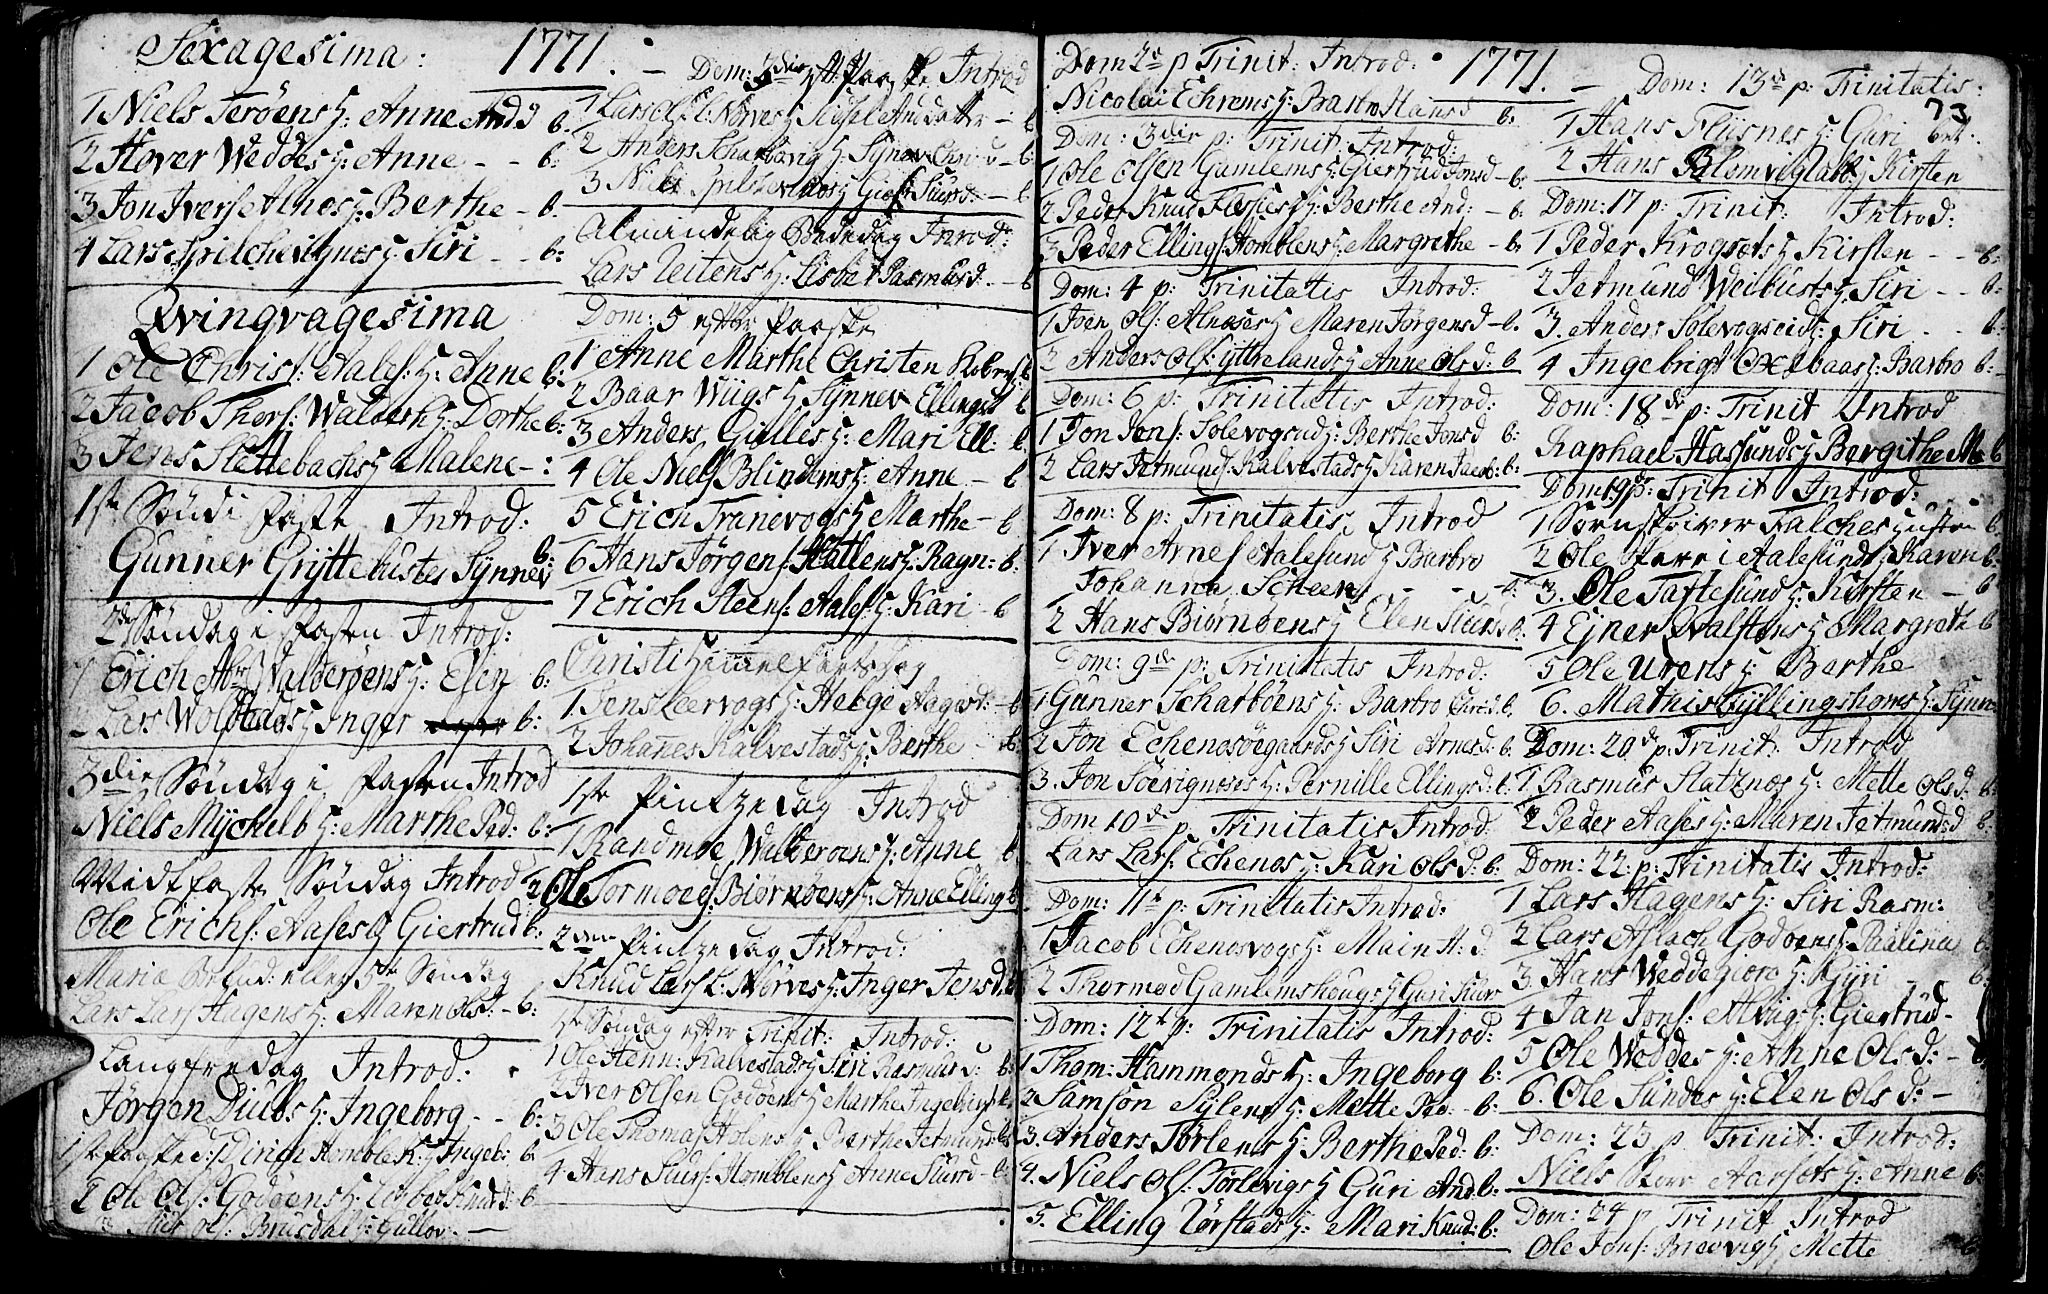 Sexagesima: 1771. –
1 Niels Terøens H: Anne And. b.
2 Hover Weddes H: Anne - - b:
3 Jon Ivers Alnøs H: Berthe - b.
4 Lars Spilchevignes H: Siri - - b:
Qvingvagesima
1 Ole Christ: Aales: H: Anne b:
2 Jacob Thors: Walder H: Dorthe b:
3 Jens Slettebachs H Malene - :
1ste Søndag i Faste Introd:
Gunner Gryttebustes Synnev b:
2den Søndag i Fasten Introd:
1 Erich Abr: Walderøens H: Elen b:
Lars Wolstads H Inger b:
3die Søndag i Fasten Introd
Niels Myckelb H: Marthe Ped: b:
Midfaste Søndag Introd
Ole Erichs: Aases H Giertrud b:
Mariæ 5te Søndag
Lars Lars Hagens H: Maren Ols: - b:
Langfredag Introd:
Jørgen Dubs H: Ingeborg - - b:
1ste Paaske: Dirich Homble H: Ingeb: b
2 Ole Ols: Godøens H: Knuds: b
Ols: Brusdal H: Gullov. –
Dom: 3die p. Paaske Introd
1 Lars Ols: l: Nørves H Sidsel And datter - b
2 Anders Scharbøvig H Synev Chr: d - b:
3 Niels Spilchevigs H Siurd: - b
Almindelig Bededag Introd:
Lars Reitens H: Lisbet Rasmusd. - b
Dom: 5 efter Paaske
1 Anne Marthe Christen b
2 Baar Wiigs H Synnev Ellings b
3 Anders Gulles H: Mari Ell. b.
4 Ole Niels Blindems H: Anne - b
5 Erich Tranevogs H Marthe - b
6 Hans Jørgens Hatlens H: Ragn: b.
7 Erich Steens: Aales: H: Kari - b
Christi Himmelfartsdag
1 Jens Leervogs H: Helge Aagesd: - b
2 Johanes Kalvestads H: Berthe - b:
1ste Pintzedag Introd
1 Randmoe Walderøens H: Anne b
2 Ole Tormoed: Biørnøens H: Anne Elling b
2den Pintzedag Introd:
Knud Lars l: Nørves H: Inger Jens d.
1ste Søndag efter Trinit: Introd:
1 Ole Henn: Kalvestads H Siri Rasmus d: b:
2 Iver Olsen Godøens H Marthe Ingebrigt b
3 Ole Thomas Holens H Berthe Jetmunds b
4 Hans Siurs: Homblens H Anne Siurd - b:
Dom 2den p Trinit: Introd: 1771. –
Nicolai Echrems H: Barbro Hansd b:
Dom: 3die p: Trinit: Introd:
1 Ole Olsen Gamlems H: Giertrud Jonsd - b.
2 Peder Knud H: Berthe And: - b:
3 Peder Ellings: Homblens H: Margrethe - b:
Dom: 4 p: Trinitatis Introd:
1 Joen Ols: Alnøses H Maren Jørgensd - b.
2 Anders Ols: Yttrelands H Anne Ols d: b
Dom: 6 p: Trinitatis Introd:
1 Jon Jons: Solevogseid H: Berthe Jonsd b:
2 Lars Jetmunds Kalvestads H Karen Jacob: b:
Dom: 8 p: Trinitatis Introd
1 Iver Arnes Aalesund H Barbro
Johanna Scheen - - - b:
2 Hans Biørnøens H Elen Siurs d. b.
Dom: 9de p: Trinitatis Introd:
1 Gunner Scharbøens H: Barbro Chris d. b.
2 Jon Echenosøegaards H Siri Arnes d: b:
3. Jon Soevignoses H: Pernille Ellings d: b:
Dom 10de p: Trinitatis Introd:
Lars Lars: Echenos H: Kari Ols d: b:
Dom: 11te p: Trinitatis Introd:
1 Jacob Echenosvogs H: Marin H: d
2 Thormod Gamlemshougs H Guri Siurs
Dom: 12te p: Trinitatis Introd:
1 Thom: Hammonds H: Ingeborg b:
2 Samson Sylens H: Mette Ped - b:
3. Anders Tørlens H: Berthe Ped: b:
4. Niels Ols: Tørlevigs H Guri And: b:
5. Elling Tørstads H: Mari Knud: b:
Dom: 13de p: Trinitatis:
73
1 Hans Flisnes H: Guri
2 Hans Blomvigs H Kirsten
Dom: 17 p: Trinit: Introd:
1 Peder Krogsets H Kirsten - - b:
2 Jetmund Weibusts H: Siri - - b:
3. Anders Solevogseid: Siri - - b:
4 Ingebrigt Oxebaas H: Barbro b:
Dom: 18de p: Trinit Introd
Raphael Hassunds H Bergithe b
Dom 19 p: Trinit Introd:
1 Sornskriver Falches Hustru b:
2 Ole i Aalesund H Karen b:
3. Ole Taftesund H: Kirsten - b
4 Ejner Qvalstens H Margrethe b
5 Ole Urens H: Berthe
6. Mathis Gyllingshovs H Synnev
Dom: 20de p: Trinit: Introd
1 Rasmus Slatznos H: Mette Ols d. b:
2 Peder Aases H: Maren Jetmunds d b:
Dom: 22: p: Trinitatis Introd:
1 Lars Hagens H: Siri Rasm:
2 Lars Aslach Godøens H Paalina b:
3. Hans Weddegioro H: Gyri b:
4 Jan Jons: Alviig H: Giertrud -
5 Ole Weddes H: Anne Ols d: - b
6. Ole Sundes H: Elen Ols d: -
Dom: 23 p Trinit: Introd:
Niels Aarsets H: Anne b:
Dom: 24 p Trinit Introd
Ole Jons: Bredvig H Mette b